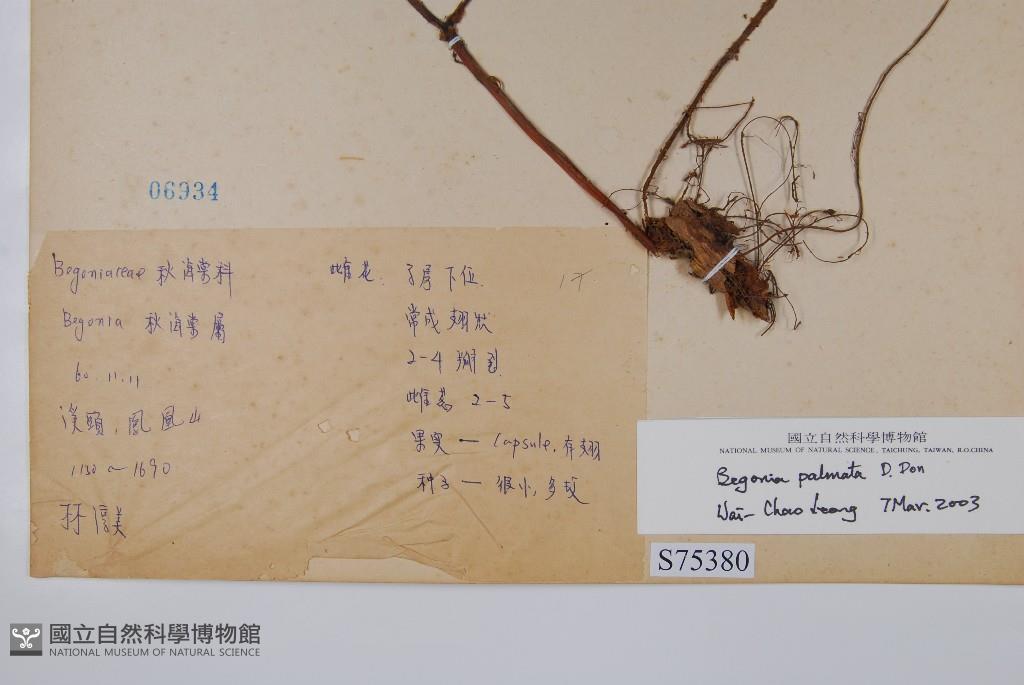 06934
Begoniaceae 秋海棠科
Begonia 秋海棠屬
60.11.11
溪頭,鳳凰山
1150~1690
林淳美
雌花: 子房下位
常成翅狀
2-4
雌蕊 2-5
果實 — Capsule,有翅
种子 — 很小,多数
國立自然科學博物館
NATIONAL MUSEUM OF NATURAL SCIENCE, TAICHUNG, TAIWAN, R.O.CHINA
Begonia palmata D. Don
Wai-Chao Leong 7 Mar. 2003
S75380
國立自然科學博物館
NATIONAL MUSEUM OF NATURAL SCIENCE